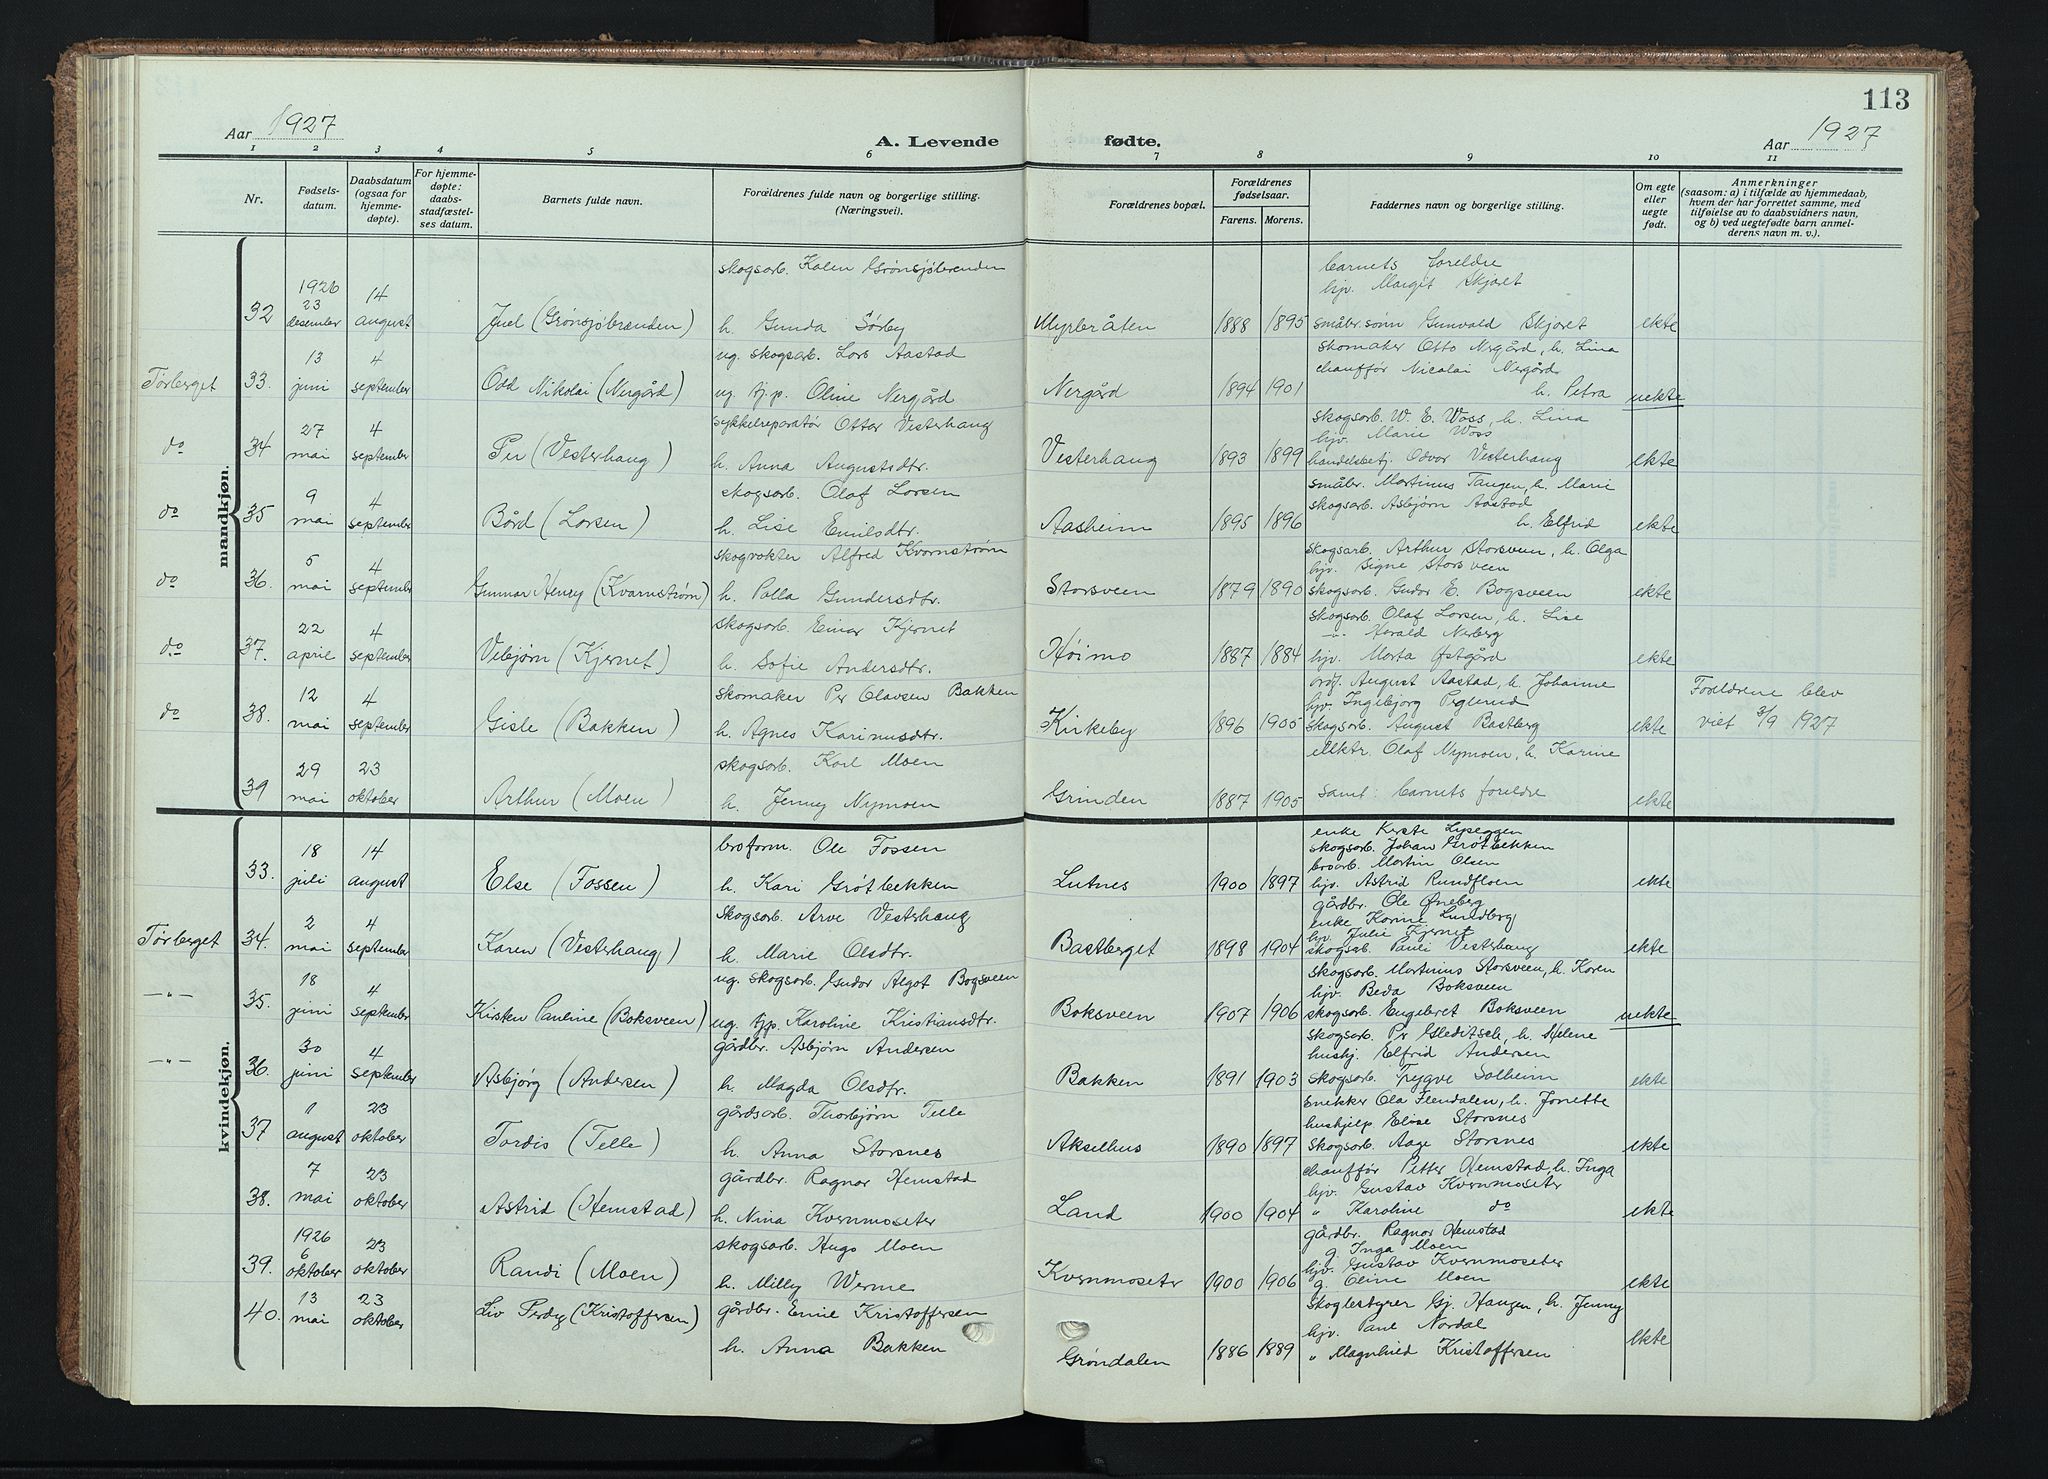 113
Aar 1927
A. Levende fødte.
Aar 1927
1 2 3 4 5 6 7 8 9 10 11
Nr. | Fødsels-datum. | Daabsdatum (ogsaa for hjemme-døpte). | For hjemme-døpte: daabs-stadfæstel-ses datum. | Barnets fulde navn. | Forældrenes fulde navn og borgerlige stilling. (Næringsvei). | Forældrenes bopæl. | Forældrenes fødselsaar. Farens. Morens. | Faddernes navn og borgerlige stilling. | Om egte eller uegte født. | Anmerkninger (saasom: a) i tilfælde av hjemmedaab, hvem der har forrettet samme, med tilføielse av to daabsvidners navn, og b) ved uegtefødte barn anmel-derens navn m. v.).
mandkjøn.
32 | 1926 23 desember | 14 august | Juel (Grønsjøbrenden) | skogsarb. Kolen Grønsjøbrenden
h. Gunda Sørby | Myrbråten | 1888 | 1895 | barnets foreldre
hjv. Margit Skjøret
småbr.sønn Gunvald Skjøret | ekte
Tørberget 33. | 13 juni | 4 september | Odd Nikolai (Nergård) | ug. skogsarb. Lars Aastad
ug. tj.p. Oline Nergård | Nergård | 1894 | 1901 | skomaker Otto Nergård, h. Lina
chauffør Nicolai Nergård
h. Petra | uekte
do 34 | 27 mai | 4 september | Per (Vesterhaug) | sykkelreparatør Ottar Vesterhaug
h. Anna Augustsdtr. | Vesterhaug | 1893 | 1899 | skogsarb. W. E. Woss, h. Lina
hjv. Marie Woss
handelsbetj. Odvar Vesterhaug | ekte
do 35 | 9 mai | 4 september | Bård (Larsen) | skogsarb. Olaf Larsen
h. Lise Emilsdtr. | Aasheim | 1895 | 1896 | småbr. Martinus Tangen, h. Marie
skogsarb. Asbjørn Aastad
h. Elfrid | ekte
do 36. | 5 mai | 4 september | Gunnar Henry (Kvarnstrøm) | skogvokter Alfred Kvarnstrøm
h. Palla Gundersdtr. | Storsveen | 1879 | 1890 | skogsarb. Arthur Storsveen, h. Olga
hjv. Signe Storsveen
skogsarb. Gudor E. Bogsveen | ekte
do 37. | 22 april | 4 september | Vebjørn (Kjernet) | skogsarb. Einar Kjernet
h. Sofie Andersdtr. | Høimo | 1887 | 1884 | skogsarb. Olaf Larsen, h. Lise
-"- Harald Nerberg
hjv. Marta Østgård | ekte
do 38. | 12 mai | 4 september | Gisle (Bakken) | skomaker Per Olavsen Bakken
h. Agnes Karinusdtr. | Kirkeby | 1896 | 1905 | ordf. August Aastad, h. Johanne
hjv. Ingebjørg Reglund
skogsarb. August Bastberg | ekte | Foreldrene blev viet 3/9 1927
39 | 29 mai | 23 oktober | Arthur (Moen) | skogsarb. Karl Moen
h. Jenny Nymoen | Grinden | 1887 | 1905 | elektr. Olaf Nymoen, h. Karine
samt: barnets foreldre | ekte
kvindekjøn.
33. | 18 juli | 14 august | Else (Fossen) | broform. Ole Fossen
h. Kari Grøtbekken | Lutnes | 1900 | 1897 | enke Kerste Lyseggen
skogsarb. Johan Grøtbekken
broarb. Martin Olsen
hjv. Astrid Rundfloen | ekte
Tørberget 34. | 2 mai | 4 september | Karen (Vesterhaug) | skogsarb. Arve Vesterhaug
h. Marie Olsdtr. | Bastberget | 1898 | 1904 | gårdbr. Ole Øneberg
enke Karine Lundberg
hjv. Julie Kjernet
skogsarb. Pauli Vesterhaug | ekte
-"- 35. | 18 juni | 4 september | Kirsten Pauline (Boksveen) | ug. skogsarb. Gudor Algot Bogsveen
ug. tjp. Karoline Kristiansdtr. | Boksveen | 1907 | 1906 | skogsarb. Martinius Storsveen, h. Karen
hjv. Beda Boksveen
skogsarb. Engebret Boksveen | uekte
-"- 36. | 30 juni | 4 september | Asbjørg (Andersen) | gårdbr. Asbjørn Andersen
h. Magda Olsdtr. | Bakken | 1891 | 1903 | skogsarb. Per Gleditsch, h. Helene
hushj. Elfrid Andersen
skogsarb. Trygve Solheim | ekte
37 | 1 august | 23 oktober | Tordis (Telle) | gårdsarb. Thorbjørn Telle
h. Anna Storsnes | Akselhus | 1890 | 1897 | snekker Ola Flendalen, h. Jonette
hushjelp Elise Storsnes
skogsarb. Aage Storsnes | ekte
38. | 7 mai | 23 oktober | Astrid (Hemstad) | gårdbr. Ragnar Hemstad
h. Nina Kvernmoseter | Land | 1900 | 1904 | chauffør Petter Hemstad, h. Inga
hjv. Gustav Kvernmoseter
" Karoline do | ekte
39. | 1926 6 oktober | 23 oktober | Randi (Moen) | skogsarb. Hugo Moen
h. Milly Werme | Kvernmoseter | 1900 | 1906 | gårdbr. Ragnar Hemstad
g. Inga Moen
hjv. Gustav Kvernmoseter
g. Oline Moen | ekte
40. | 13 mai | 23 oktober | Liv Perdy (Kristoffersen) | gårdbr. Emil Kristoffersen
h. Anna Bakken | Grøndalen | 1886 | 1889 | skogbestyrer Gj. Haugen, h. Jenny
hjv. Paul Nordal
" Magnhild Kristoffersen | ekte